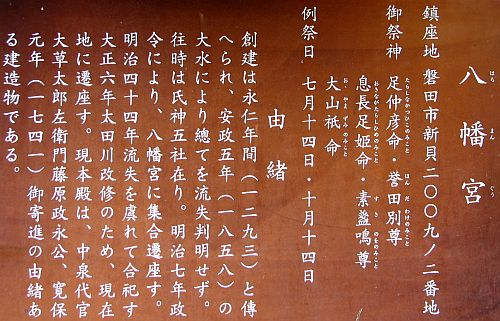 八幡宮
鎮座地 磐田市新貝二〇〇九ノ二番地
御祭神 足仲彦命・誉田別尊
息長足姫命・素盞鳴尊
大山祇命
例祭日 七月十四日・十月十四日
由緒
創建は永仁年間(一二九三)と傳
へられ、安政五年(一八五八)の
大水により總てを流失判明せず。
往時は氏神五社在り。明治七年政
令により、八幡宮に集合遷座す。
明治四十四年流失を虞れて合祀す
大正六年太田川改修のため、現在
地に遷座す。現本殿は、中泉代官
大草太郎左衛門藤原政永公、寛保
元年(一七四一)御寄進の由緒あ
る建造物である。